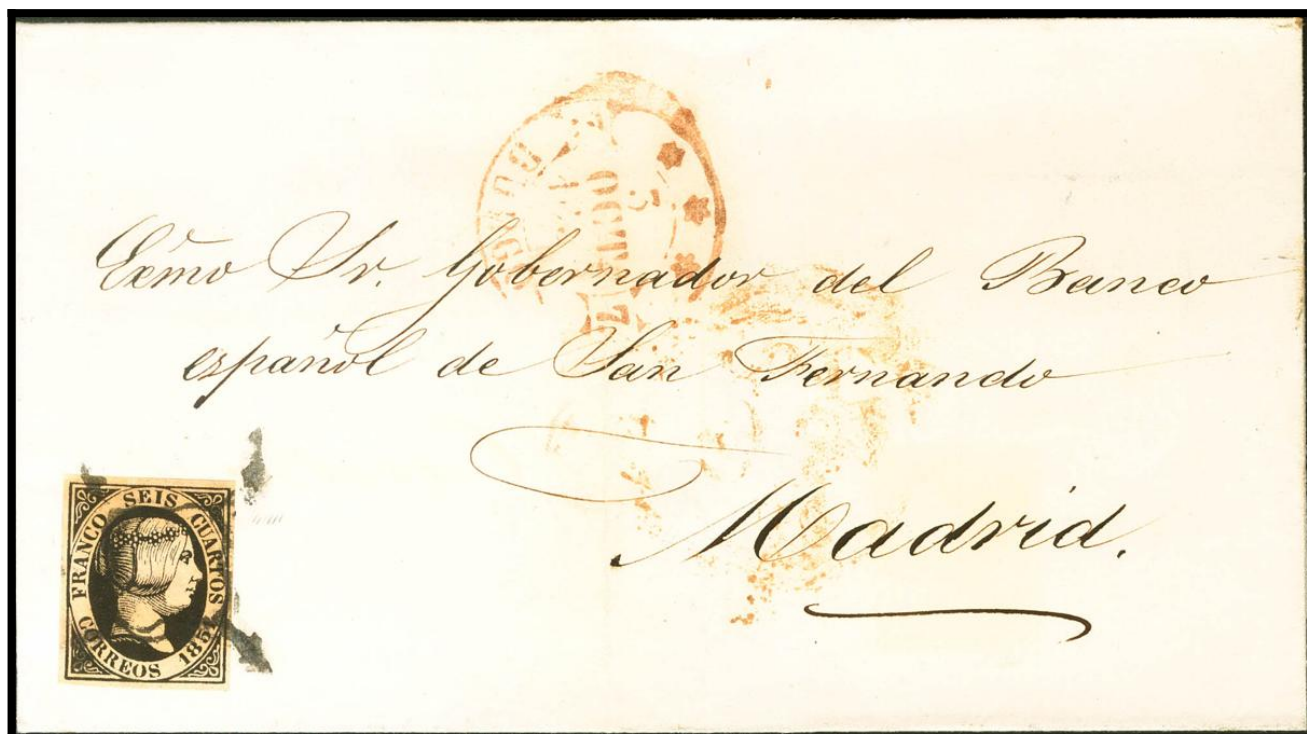 Exm̃o Sr. Gobernador del Banco
español de San Fernando
Madrid.
FRANCO SEIS CUARTOS
CORREOS 1851